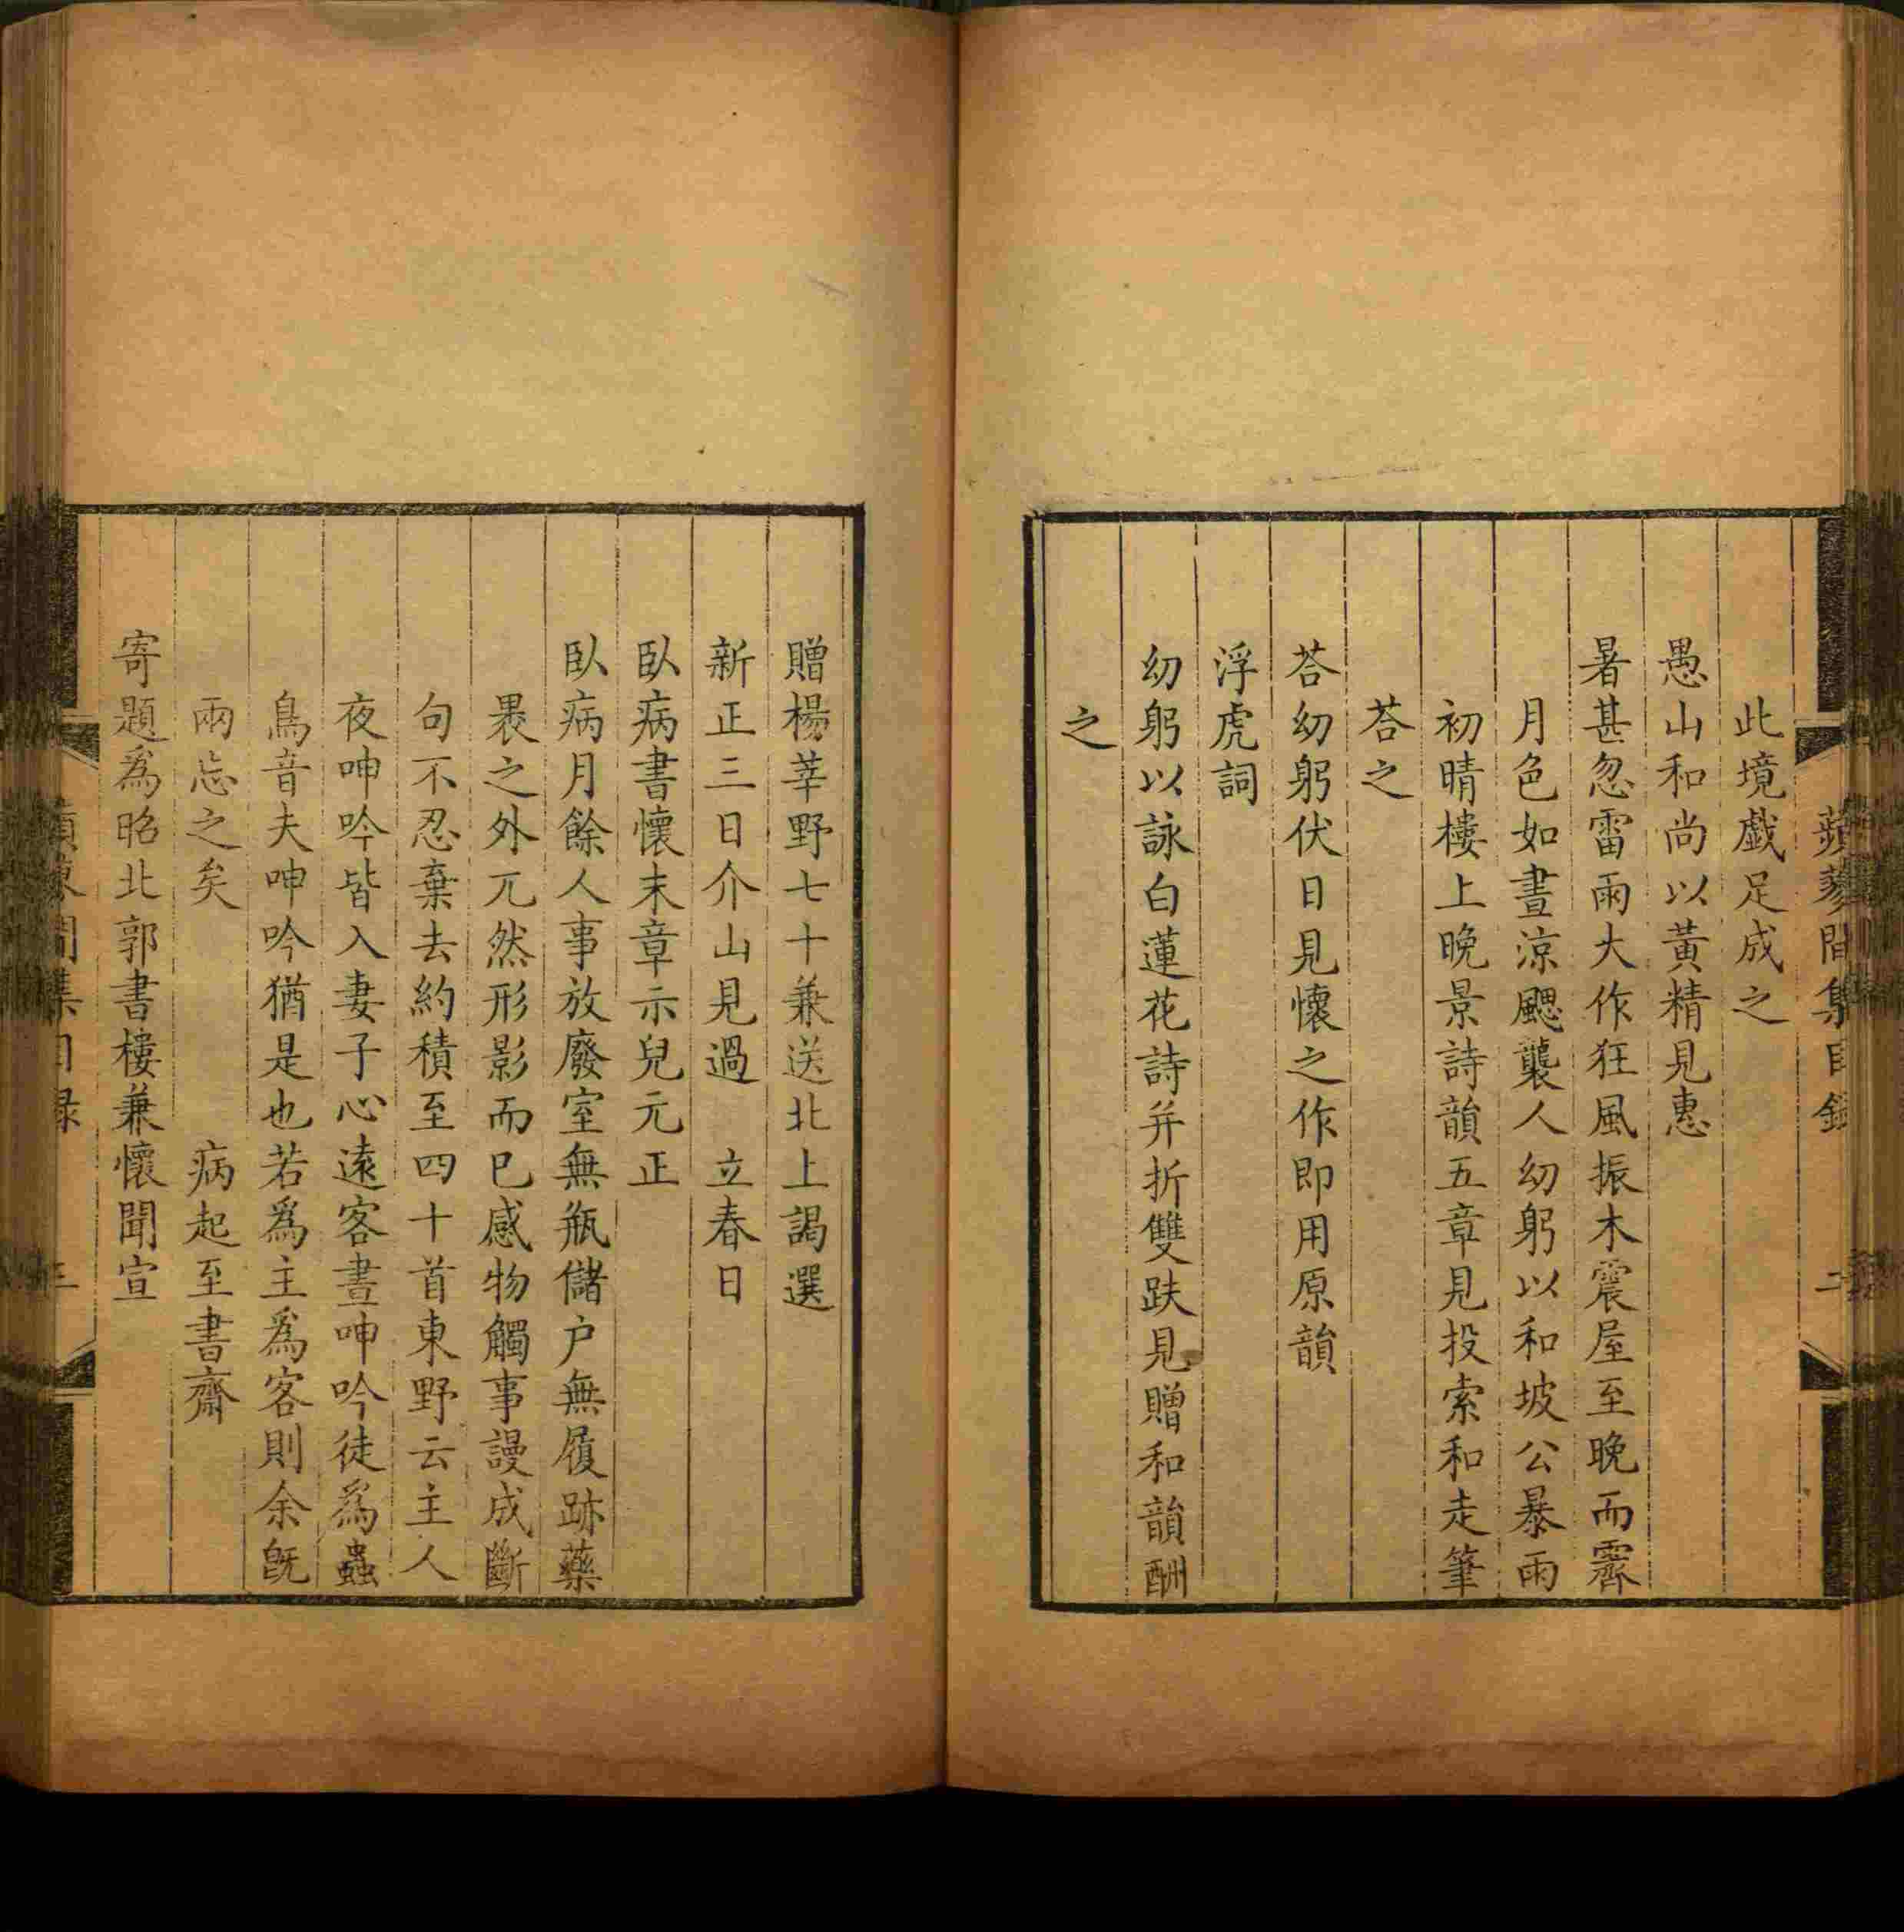 蘋蓼間集目錄
二
此境戲足成之
愚山和尚以黃精見惠
暑甚忽雷雨大作狂風振木震屋至晚而霽
月色如晝涼颸襲人幼躬以和坡公暴雨
初晴樓上晚景詩韻五章見投索和走筆
荅之
荅幼躬伏日見懷之作即用原韻
浮虎詞
幼躬以詠白蓮花詩并折雙趺見贈和韻酬
之
贈楊莘野七十兼送北上謁選
新正三日介山見過　立春日
臥病書懷末章示兒元正
臥病月餘人事放廢室無瓶儲户無履跡藥
裹之外兀然形影而已感物觸事謾成斷
句不忍棄去約積至四十首東野云主人
夜呻吟皆入妻子心遠客晝呻吟徒爲蟲
鳥音夫呻吟猶是也若爲主爲客則余旣
兩忘之矣　病起至書齋
寄題爲昭北郭書樓兼懷聞宣
間集目錄
三